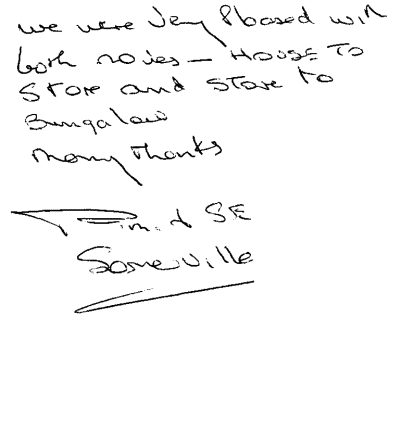 we were very pleased with
both moves – House To
Store and Store to
Bungalow
Many Thanks
SE
Somerville